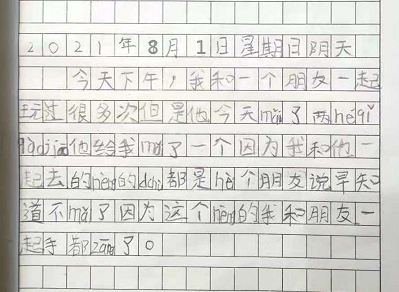 2021年8月1日星期日阴天
今天下午，我和一个朋友一起
玩过很多次但是他今天mǎi了两hé
他给我mǎi了一个因为我和他一
起去的něng的dōu都是hè个朋友说早知
道不mǎi了因为这个něng的我和朋友一
起手都zāng了。